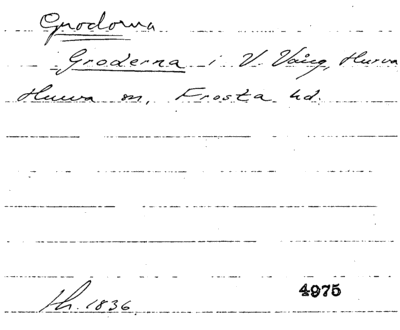 Grodorna
Groderna i V Vång, Hurva
Hurva sn, Frosta hd.
Th. 1836
4975